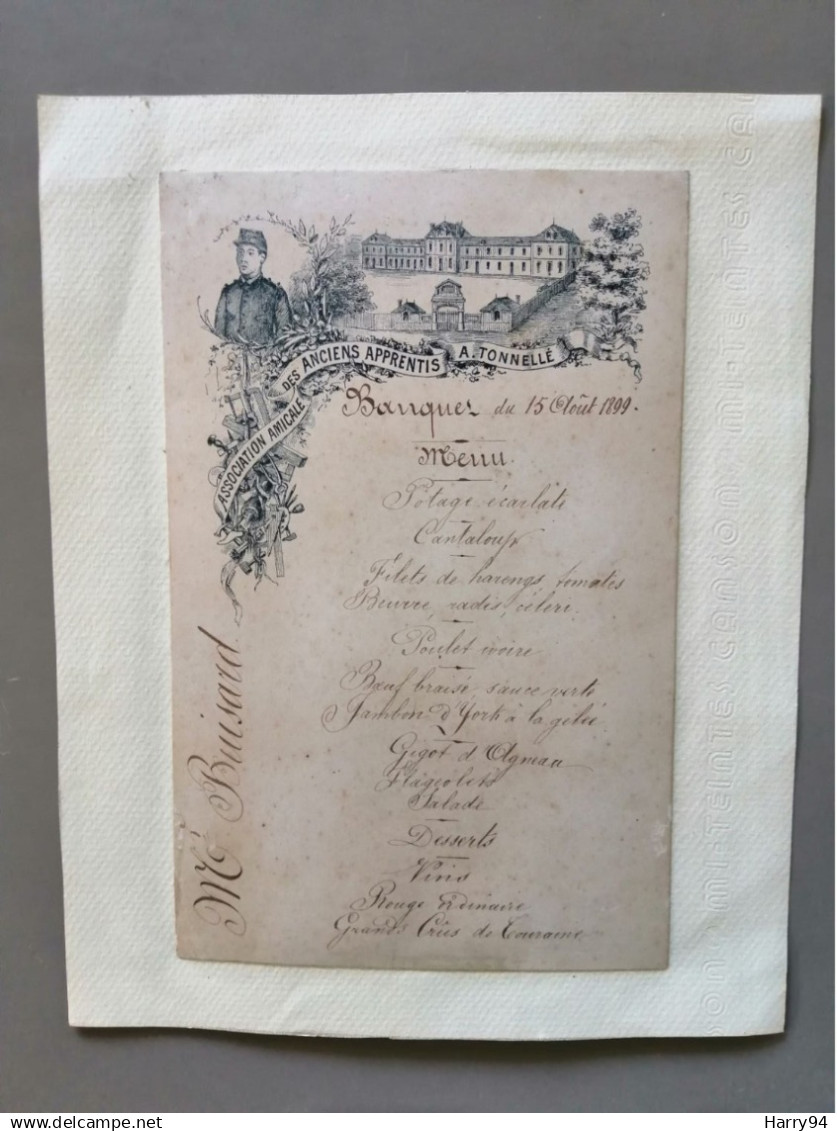 ASSOCIATION AMICALE DES ANCIENS APPRENTIS A. TONNELLÉ
Banquet du 15 Août 1899.
Menu.
Potage écarlate
Cantaloup
Filets de harengs, tomates
Beurre, radis, céleri.
Poulet ivoire
Bœuf braisé, sauce verte
Jambon d'York à la gelée
Gigot d'Agneau
Flageolets
Salade
Desserts
Vins
Rouge ordinaire
Grands Crûs de Touraine
Mr Buisard
CANSON MI-TEINTES
Harry94
delcampe.net